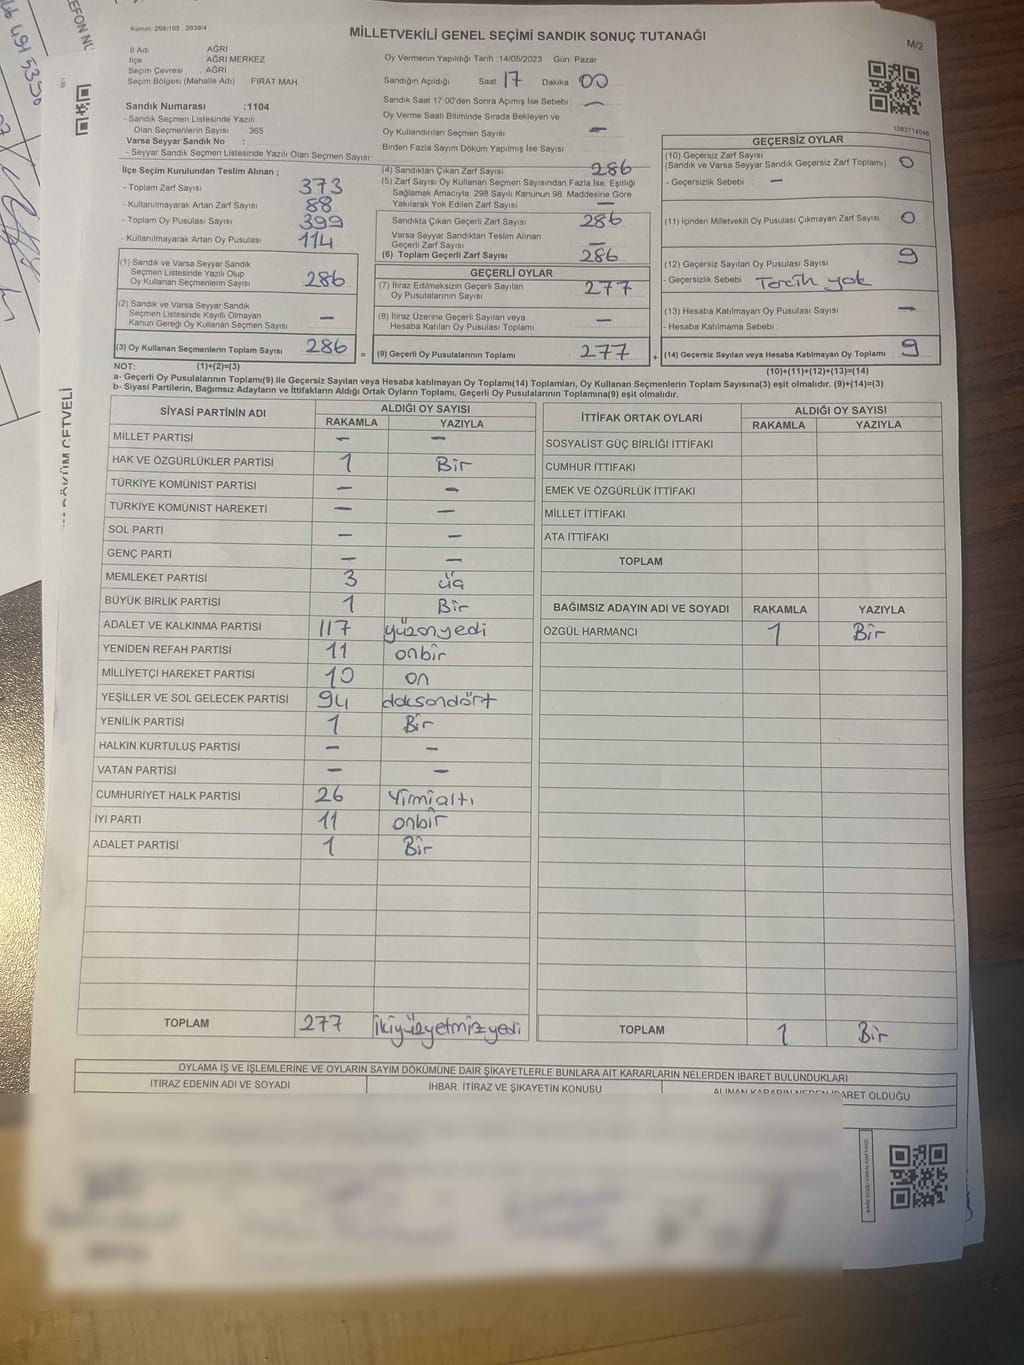 Kanun: 298/105 , 2839/4
MİLLETVEKİLİ GENEL SEÇİMİ SANDIK SONUÇ TUTANAĞI
M/2
İl Adı AĞRI
İlçe AĞRI MERKEZ
Seçim Çevresi AĞRI
Seçim Bölgesi (Mahalle Adı) FIRAT MAH.
Sandık Numarası :1104
- Sandık Seçmen Listesinde Yazılı
Olan Seçmenlerin Sayısı : 365
Varsa Seyyar Sandık No :
- Seyyar Sandık Seçmen Listesinde Yazılı Olan Seçmen Sayısı :
Oy Vermenin Yapıldığı Tarih :14/05/2023 Gün: Pazar
Sandığın Açıldığı Saat 17 Dakika 00
Sandık Saat 17:00'den Sonra Açımış İse Sebebi : —
Oy Verme Saati Bitiminde Sırada Bekleyen ve
Oy Kullandırılan Seçmen Sayısı —
Birden Fazla Sayım Döküm Yapılmış İse Sayısı :
1083714045
İlçe Seçim Kurulundan Teslim Alınan ;
- Toplam Zarf Sayısı 373
- Kullanılmayarak Artan Zarf Sayısı 88
- Toplam Oy Pusulası Sayısı 399
- Kullanılmayarak Artan Oy Pusulası 114
(1) Sandık ve Varsa Seyyar Sandık
Seçmen Listesinde Yazılı Olup
Oy Kullanan Seçmenlerin Sayısı 286
(2) Sandık ve Varsa Seyyar Sandık
Seçmen Listesinde Kayıtlı Olmayan
Kanun Gereği Oy Kullanan Seçmen Sayısı —
(3) Oy Kullanan Seçmenlerin Toplam Sayısı 286
(4) Sandıktan Çıkan Zarf Sayısı 286
(5) Zarf Sayısı Oy Kullanan Seçmen Sayısından Fazla İse, Eşitliği
Sağlamak Amacıyla, 298 Sayılı Kanunun 98. Maddesine Göre
Yakılarak Yok Edilen Zarf Sayısı —
Sandıkta Çıkan Geçerli Zarf Sayısı 286
Varsa Seyyar Sandıktan Teslim Alınan
Geçerli Zarf Sayısı —
(6) Toplam Geçerli Zarf Sayısı 286
GEÇERLİ OYLAR
(7) İtiraz Edilmeksizin Geçerli Sayılan
Oy Pusulalarının Sayısı 277
(8) İtiraz Üzerine Geçerli Sayılan veya
Hesaba Katılan Oy Pusulası Toplamı —
= (9) Geçerli Oy Pusulalarının Toplamı 277 +
GEÇERSİZ OYLAR
(10) Geçersiz Zarf Sayısı
(Sandık ve Varsa Seyyar Sandık Geçersiz Zarf Toplamı) 0
- Geçersizlik Sebebi : —
(11) İçinden Milletvekili Oy Pusulası Çıkmayan Zarf Sayısı 0
(12) Geçersiz Sayılan Oy Pusulası Sayısı 9
- Geçersizlik Sebebi : Tercih yok
(13) Hesaba Katılmayan Oy Pusulası Sayısı —
- Hesaba Katılmama Sebebi :
(14) Geçersiz Sayılan veya Hesaba Katılmayan Oy Toplamı 9
NOT: (1)+(2)=(3)
(10)+(11)+(12)+(13)=(14)
a- Geçerli Oy Pusulalarının Toplamı(9) ile Geçersiz Sayılan veya Hesaba katılmayan Oy Toplamı(14) Toplamları, Oy Kullanan Seçmenlerin Toplam Sayısına(3) eşit olmalıdır. (9)+(14)=(3)
b- Siyasi Partilerin, Bağımsız Adayların ve İttifakların Aldığı Ortak Oyların Toplamı, Geçerli Oy Pusulalarının Toplamına(9) eşit olmalıdır.
SİYASİ PARTİNİN ADI ALDIĞI OY SAYISI
RAKAMLA YAZIYLA
MİLLET PARTİSİ — —
HAK VE ÖZGÜRLÜKLER PARTİSİ 1 Bir
TÜRKİYE KOMÜNİST PARTİSİ — —
TÜRKİYE KOMÜNİST HAREKETİ — —
SOL PARTİ — —
GENÇ PARTİ — —
MEMLEKET PARTİSİ 3 üç
BÜYÜK BİRLİK PARTİSİ 1 Bir
ADALET VE KALKINMA PARTİSİ 117 yüzonyedi
YENİDEN REFAH PARTİSİ 11 onbir
MİLLİYETÇİ HAREKET PARTİSİ 10 on
YEŞİLLER VE SOL GELECEK PARTİSİ 94 doksandört
YENİLİK PARTİSİ 1 Bir
HALKIN KURTULUŞ PARTİSİ — —
VATAN PARTİSİ — —
CUMHURİYET HALK PARTİSİ 26 Yirmialtı
İYİ PARTİ 11 onbir
ADALET PARTİSİ 1 Bir
TOPLAM 277 ikiyüzyetmişyedi
İTTİFAK ORTAK OYLARI ALDIĞI OY SAYISI
RAKAMLA YAZIYLA
SOSYALİST GÜÇ BİRLİĞİ İTTİFAKI
CUMHUR İTTİFAKI
EMEK VE ÖZGÜRLÜK İTTİFAKI
MİLLET İTTİFAKI
ATA İTTİFAKI
TOPLAM
BAĞIMSIZ ADAYIN ADI VE SOYADI RAKAMLA YAZIYLA
ÖZGÜL HARMANCI 1 Bir
TOPLAM 1 Bir
OYLAMA İŞ VE İŞLEMLERİNE VE OYLARIN SAYIM DÖKÜMÜNE DAİR ŞİKAYETLERLE BUNLARA AİT KARARLARIN NELERDEN İBARET BULUNDUKLARI
İTİRAZ EDENİN ADI VE SOYADI İHBAR, İTİRAZ VE ŞİKAYETİN KONUSU ALINAN KARARIN NEDEN İBARET OLDUĞU